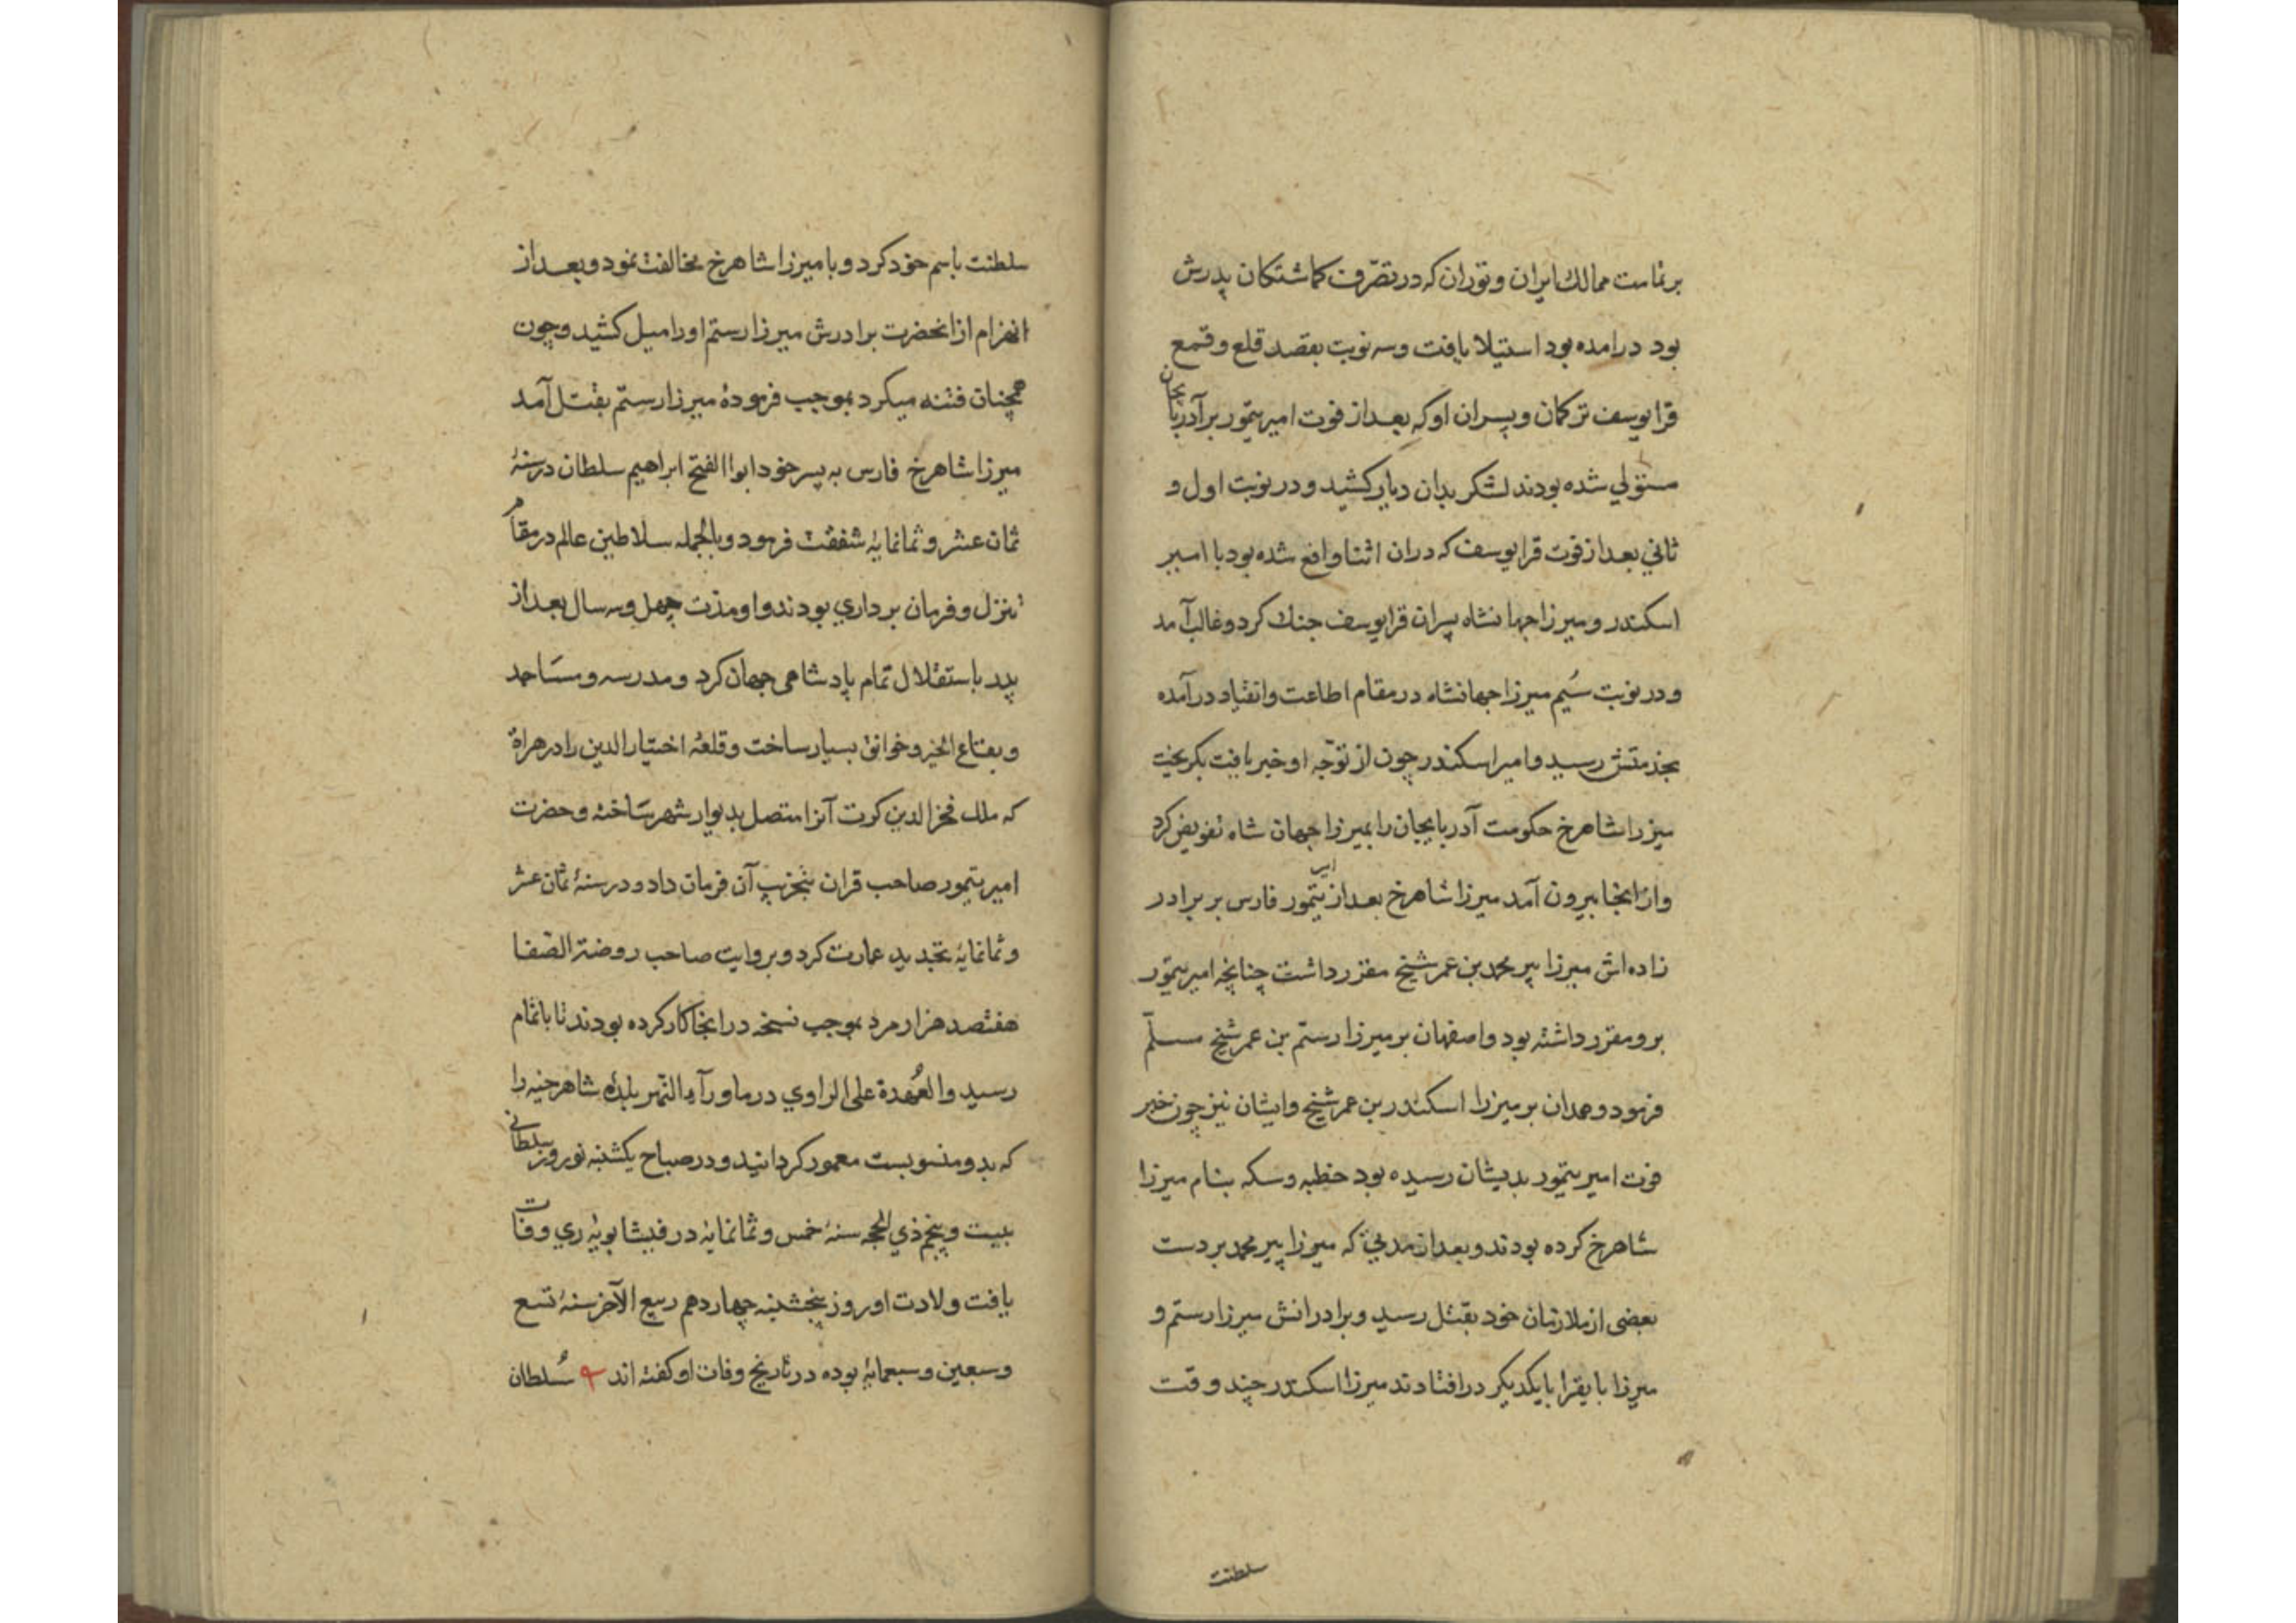 برتمامت ممالك ایران و توران که در تصرّف کماشتکان پدرش
بود درامده بود استیلا یافت وسه نوبت بقصد قلع و قمع
قرا یوسف ترکمان و پسران او که بعد از فوت امیر تیمور بر آذربایجان
مستولي شده بودند لشکر بدان دیار کشید و در نوبت اول و
ثاني بعد از فوت قرا یوسف که دران اثنا واقع شده بود با امیر
اسکندر و میرزا جهانشاه پسران قرا یوسف جنك کرد و غالب آمد
و در نوبت سُیم میرزا جهانشاه در مقام اطاعت وانقیاد درآمده
بخدمتش رسید و امیر اسکندر چون از توجّه او خبر یافت بکریخت
میرزا شاهرخ حکومت آذربایجان را بمیرزا جهان شاه تفویض کرد
وازانجا بیرون آمد میرزا شاهرخ بعد از امیر تیمور فارس بر برادر
زاده اش میرزا پیر محمد بن عمر شیخ مقرر داشت چنانچه امیر تیمور
برو مقرر داشته بود و اصفهان بر میرزا رستم بن عمر شیخ مسلّم
فرمود و همدان بر میرزا اسکندر بن عمر شیخ وایشان نیز چون خبر
فوت امیر تیمور بدیشان رسیده بود خطبه و سکه بنام میرزا
شاهرخ کرده بودند و بعد از مدتي که میرزا پیر محمد بر دست
بعضی از ملازمان خود بقتل رسید و برادرانش میرزا رستم و
میرزا بایقرا با یکدیکر درافتادند میرزا اسکندر چند وقت
سلطنت
سلطنت باسم خود کرد و با میرزا شاهرخ مخالفت نمود و بعد از
انهزام از انحضرت برادرش میرزا رستم او را میل کشید و چون
همچنان فتنه میکرد بموجب فرمودهٔ میرزا رستم بقتل آمد
میرزا شاهرخ فارس به پسر خود ابوا الفتح ابراهیم سلطان در سنهٔ
ثمان عشر و ثمانمایهٔ شفقت فرمود و بالجمله سلاطین عالم در مقام
تنزل و فرمان برداري بودند و او مدت چهل وسه سال بعد از
پدر باستقلال تمام پادشاهی جهان کرد و مدرسه و مساجد
و بقاع الخیر و خوانق بسیار ساخت و قلعهٔ اختیار الدین را در هراة
که ملك فخر الدین کرت آنرا متصل بدیوار شهر ساخته و حضرت
امیر تیمور صاحب قران بتخریب آن فرمان داد و در سنهٔ ثمان عشر
و ثمانمایهٔ تجدید عمارت کرد و بروایت صاحب روضة الصّفا
هفتصد هزار مرد بموجب نسخه درانجا کار کرده بودند تا باتمام
رسید والعُهدة علی الراوي در ماورآء النّهر بلدهٔ شاهرخیه را
که بدو منسوبست معمور کردانید و در صباح یکشنبه نوروز سلطانی
بیست و پنجم ذي الحجه سنهٔ خمس و ثمانمایهٔ در فیشابویهٔ ري وفات
یافت ولادت او روز پنجشنبه چهاردهم ربیع الآخر سنهٔ تسع
و سبعین و سبعمایهٔ بوده در تاریخ وفات او کفته اند سُلطان